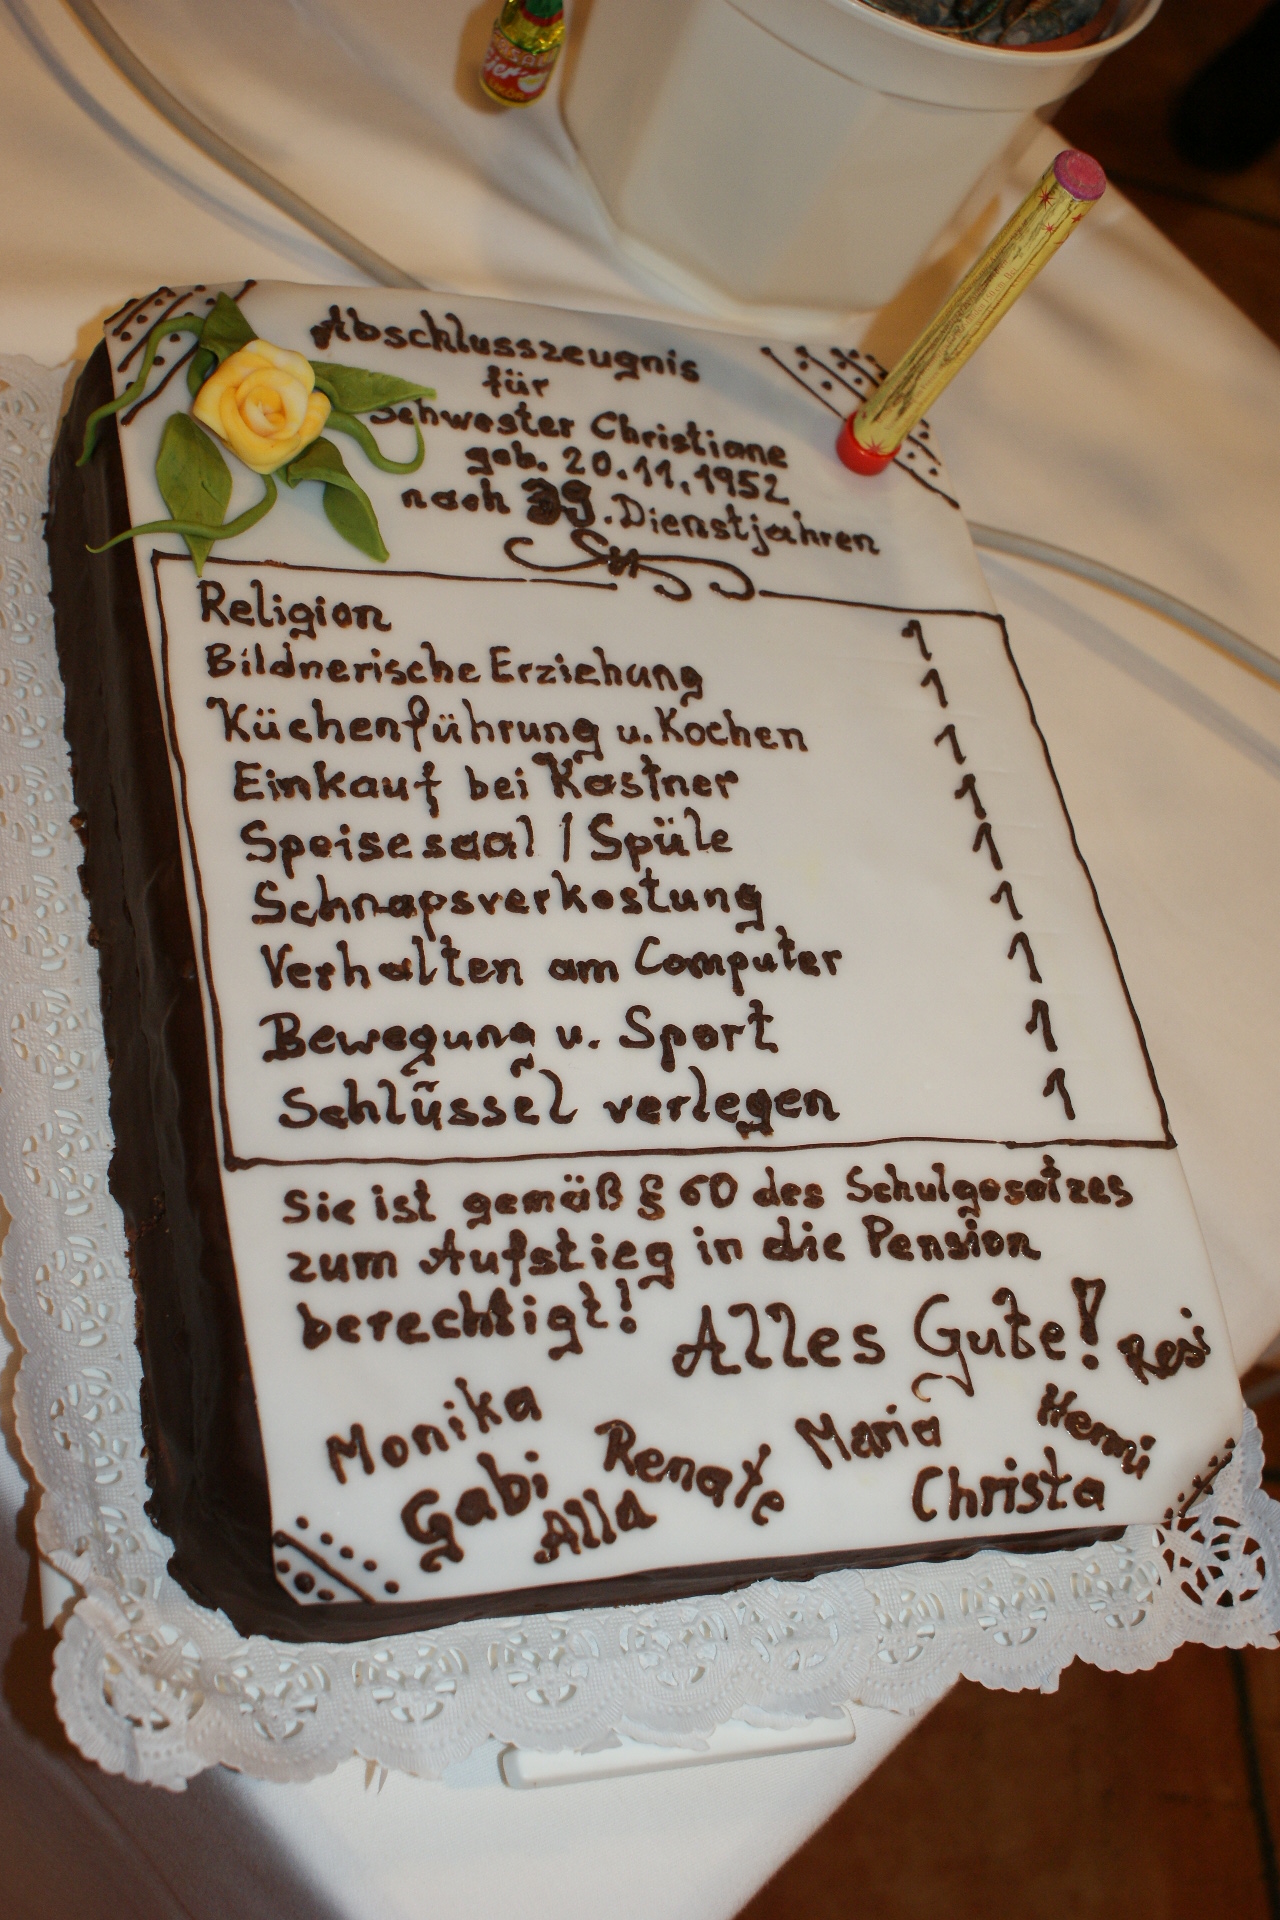 Abschlusszeugnis
für
Schwester Christiane
geb. 20.11.1952
nach 39. Dienstjahren
Religion 1
Bildnerische Erziehung 1
Küchenführung u. Kochen 1
Einkauf bei Kastner 1
Speisesaal / Spüle 1
Schnapsverkostung 1
Verhalten am Computer 1
Bewegung u. Sport 1
Schlüssel verlegen 1
Sie ist gemäß § 60 des Schulgesetzes
zum Aufstieg in die Pension
berechtigt!
Alles Gute!
Resi
Monika
Renate
Maria
Henni
Gabi
Alla
Christa